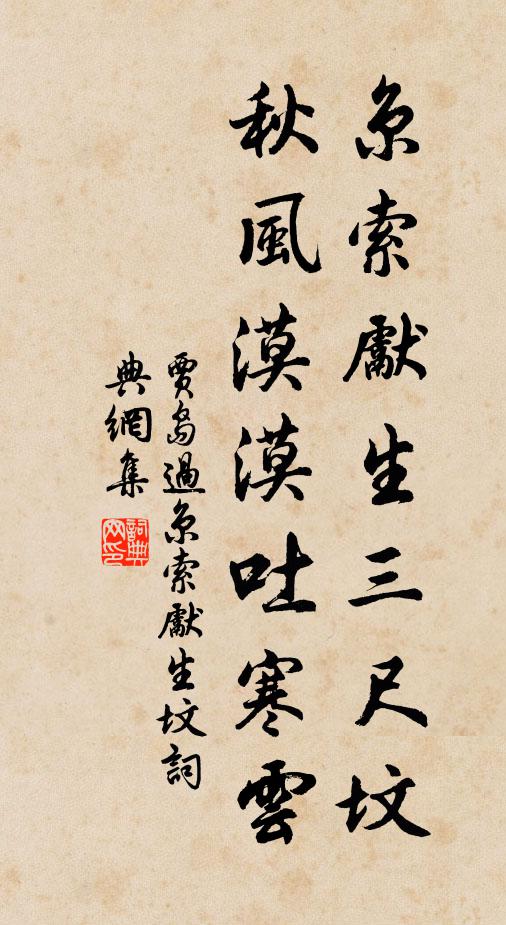 京索獻生三尺坟
秋風漠漠吐寒雲
賈島過京索獻生坟詞
典網集
詞典
网印